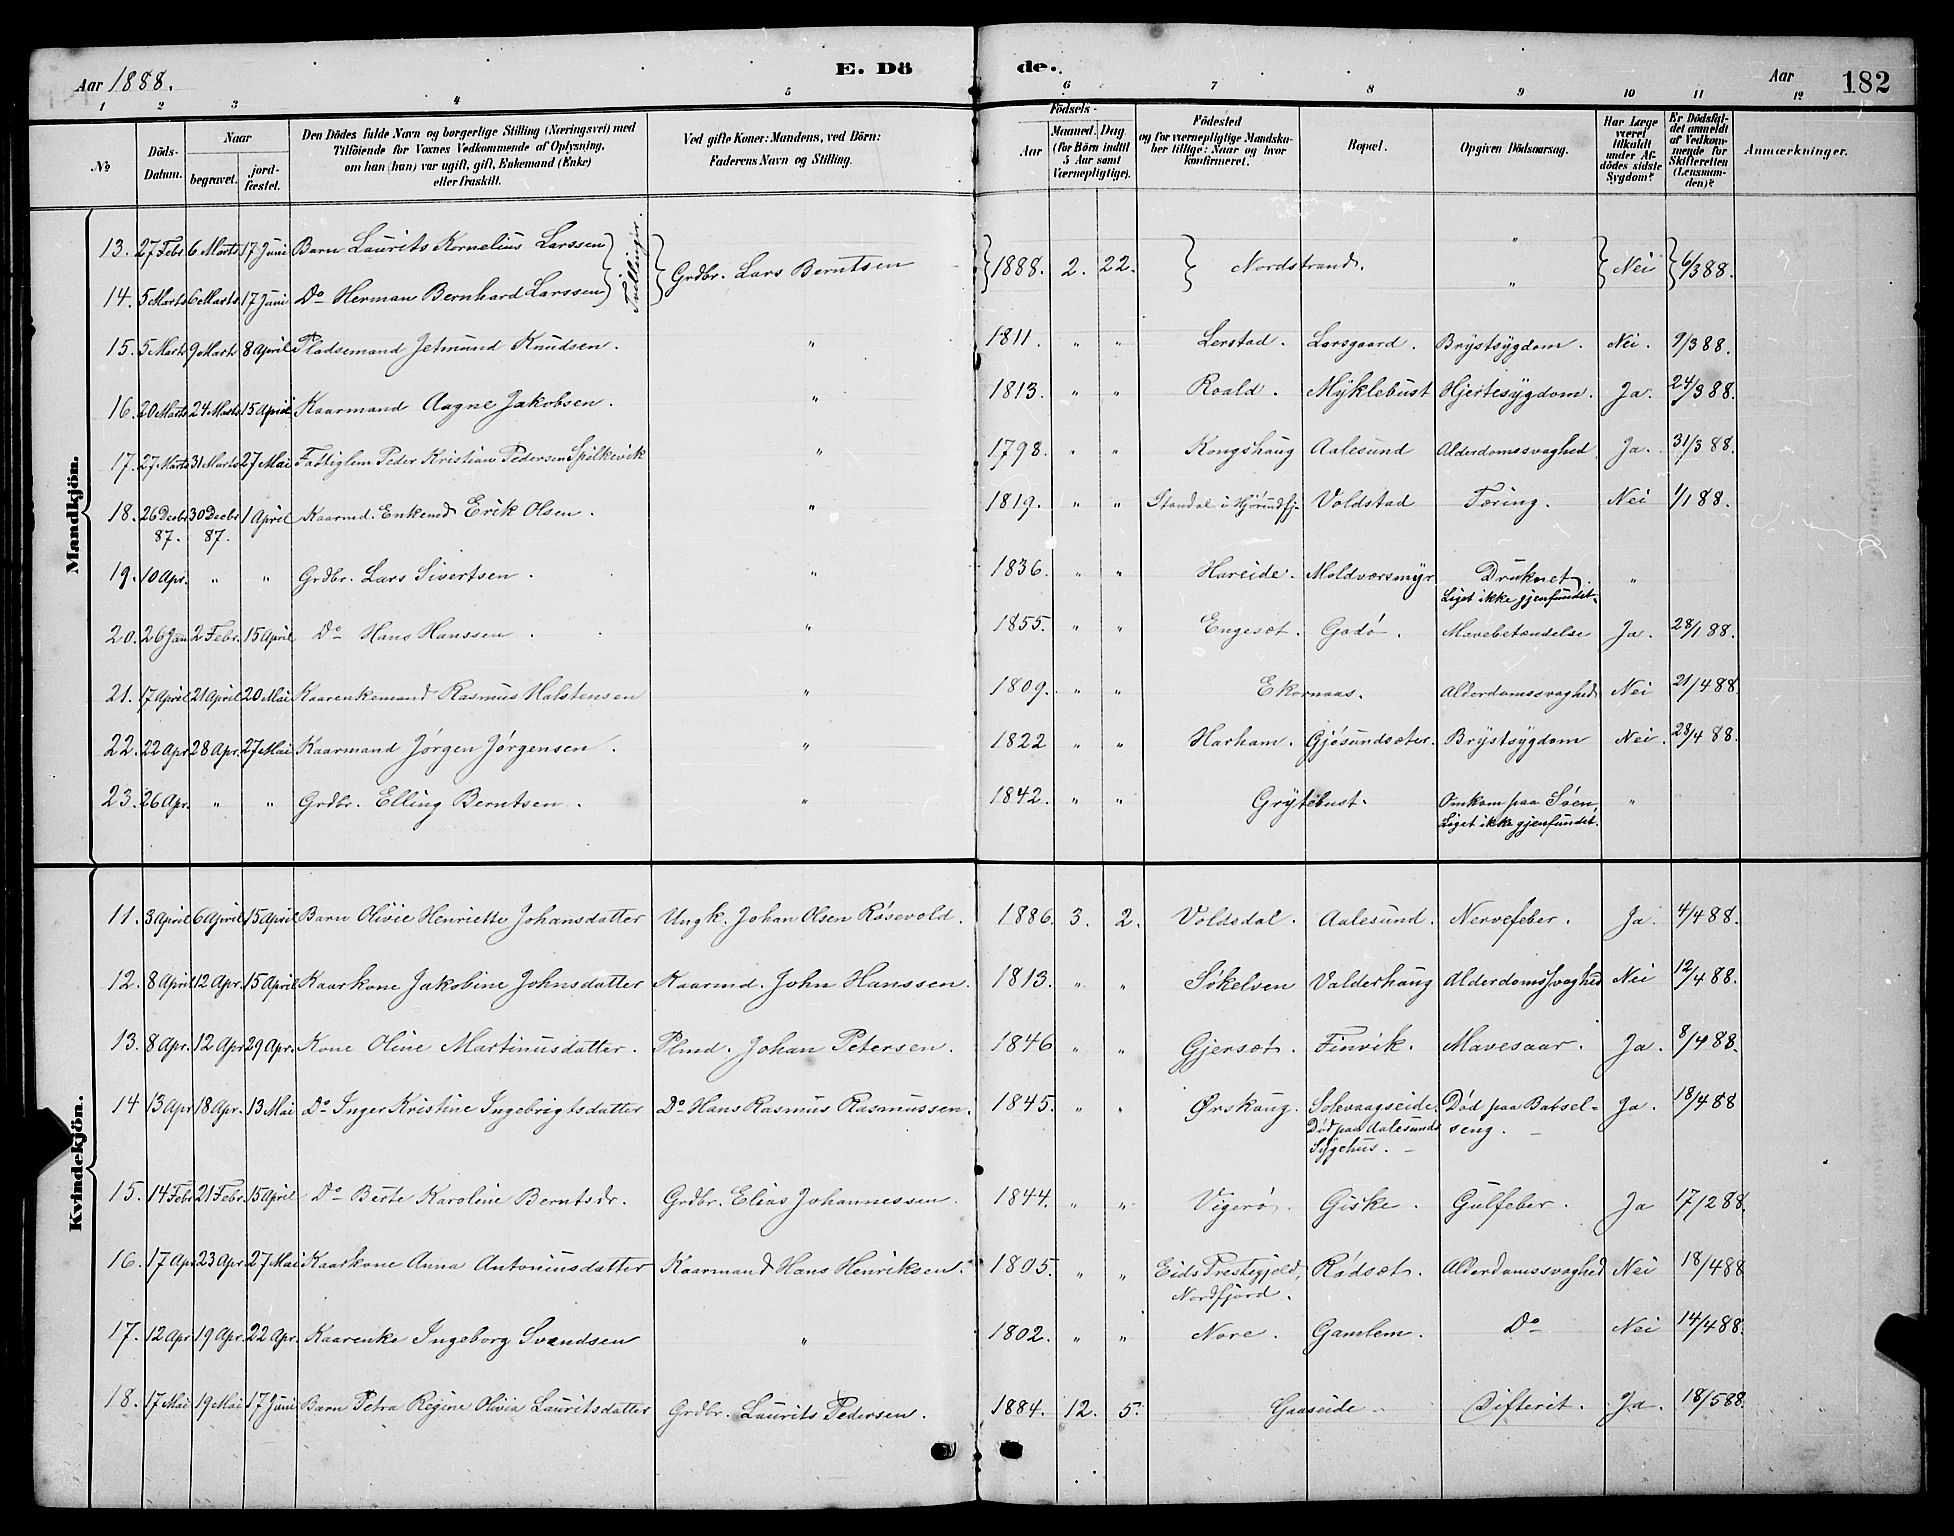 Aar 1888. E. Dö de. Aar 182
1 2 3 4 5 6 7 8 9 10 11 12
No Döds-Datum. Naar begravet. jord-fæstet. Den Dödes fulde Navn og borgerlige Stilling (Næringsvei) med Tilföiende for Voxnes Vedkommende af Oplysning, om han (hun) var ugift, gift, Enkemand (Enke) eller fraskilt. Ved gifte Koner: Mandens, ved Börn: Faderens Navn og Stilling. Födsels- Aar Maaned. Dag (for Börn indtil 5 Aar samt Værnepligtige). Födested og for værnepligtige Mandska-ber tillige: Naar og hvor konfirmeret. Bopæl. Opgiven Dödsaarsag. Har Læge været tilkaldt under Af-dödes sidste Sygdom? Er Dödsfal-det anmeldt af Vedkom-mende for Skifteretten (Lensman-den)? Anmærkninger.
Mandkjön.
13. 27 Febr 6 Marts 17 Juni Barn Laurits Kornelius Larssen } Tvillinger. } Grdbr. Lars Berntsen } 1888. 2. 22. } Nordstrand. " } Nei } 6/3 88.
14. 5 Marts 6 Marts 17 Juni Do Herman Bernhard Larssen "
15. 5 Marts 9 Marts 8 April Pladsemand Jetmund Knudsen. " 1811. " " Lerstad. Larsgaard. Brystsygdom. Nei. 9/3 88.
16. 20 Marts 24 Marts 15 April Kaarmand Aagne Jakobsen. " 1813. " " Roald. Myklebust Hjertesygdom. Ja. 24/3 88.
17. 27 Marts 31 Marts 27 Mai Fattiglem Peder Kristian Pedersen Spilkevik " 1798. " " Kongshaug Aalesund Alderdomssvaghed Ja. 31/3 88.
18. 26 Decbr 30 Decbr 1 April Kaarmd. Enkemd Erik Olsen. " 1819. " " Standal i Hjörundfj. Voldstad Tæring. Nei 1/1 88.
87. 87.
19. 10 Apr. " " Grdbr. Lars Sivertsen. " 1836. " " Hareide. Moldværsmyr Druknet. "
Liget ikke gjenfundet.
20. 26 Jan 2 Febr. 15 April Do Hans Hanssen. " 1855. " " Engesæt. Godö. Mavebetændelse Ja. 28/1 88.
21. 17 April 21 April 20 Mai Kaarenkemand Rasmus Halstensen " 1809. " " Ekornaas. Alderdomssvaghed Nei 21/4 88.
22. 22 Apr 28 Apr. 27 Mai Kaarmand Jörgen Jörgensen. " 1822 " " Harham. Gjösundsæter. Brystsygdom Nei. 28/4 88.
23. 26 Apr. " " Grdbr. Elling Berntsen. " 1842. " " Grytebust. Omkom paa Söen, "
Liget ikke gjenfundet.
Kvindekjön.
11. 3 April 6 April 15 April Barn Olivie Henriette Johansdatter Ungk. Johan Olsen Rösevold. 1886. 3. 2. Voldsdal. Aalesund. Nervefeber. Ja. 4/4 88.
12. 8 April 12 Apr. 15 April Kaarkone Jakobine Johnsdatter Kaarmd. John Hanssen. 1813. " " Sökelven Valderhaug Alderdomssvaghed Nei 12/4 88.
13. 8 Apr. 12 Apr 29 Apr. Kone Oline Martinusdatter. Plmd. Johan Petersen. 1846 " " Gjersæt. Finvik. Mavesaar. Ja. 8/4 88.
14 13 Apr 18 Apr. 13 Mai Do Inger Kristine Ingebrigtsdatter Do Hans Rasmus Rasmussen. 1845. " " Ørskaug. Solevaagseide. Död paa Barsel- Ja. 18/4 88
Död paa Aalesunds seng. –
Sygehus. –
15. 14 Febr 21 Febr. 15 April Do Berte Karoline Berntsdr. Grdbr. Elias Johannessen. 1844. " " Vigerö. Giske. Gulfeber. Ja 17/2 88.
16. 17 Apr 23 Apr 27 Mai Kaarkone Anna Antoniusdatter Kaarmand Hans Henriksen. 1805. " " Eids Prestegjeld, Rödsæt. Alderdomssvaghed Nei 18/4 88
Nordfjord.
17. 12 Apr 19 Apr. 22 Apr. Kaarenke Ingeborg Svendsen " 1802. " " Nore. Gamlem. Do Nei 14/4 88.
18. 17 Mai 19 Mai 17 Juni Barn Petra Regine Olivia Lauritsdatter Grdbr. Laurits Pedersen. 1884. 12. 5. Gaaseide. Difterit. Ja. 18/5 88.